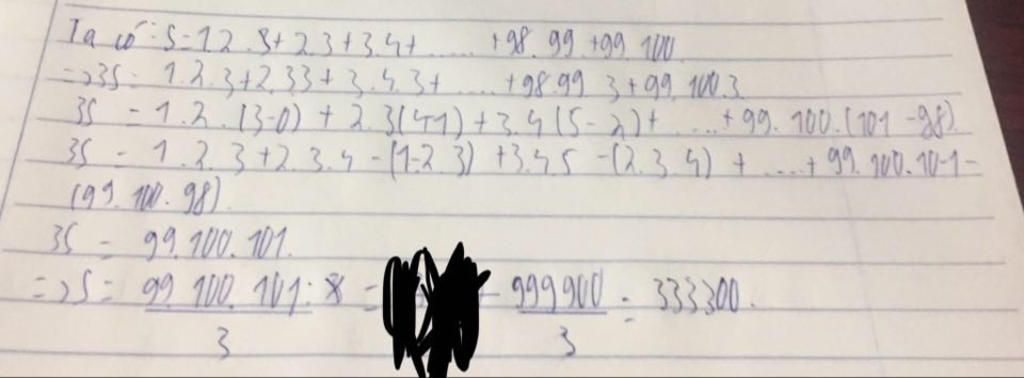 Ta có: S=1.2.3+2.3+3.4+.....+98.99+99.100
=>3S= 1.2.3+2.33+3.4.3+.....+98.99 3+99.100.3
3S = 1.2.(3-0) + 2.3(4-1)+3.4(5-2)+.....+99.100.(101-98)
3S = 1.2.3+2.3.4-(1.2.3)+3.4.5-(2.3.4)+....+99.100.101-
(99.100.98)
3S = 99.100.101.
=>S= 99.100.101: = 999900 = 333300.
3 3